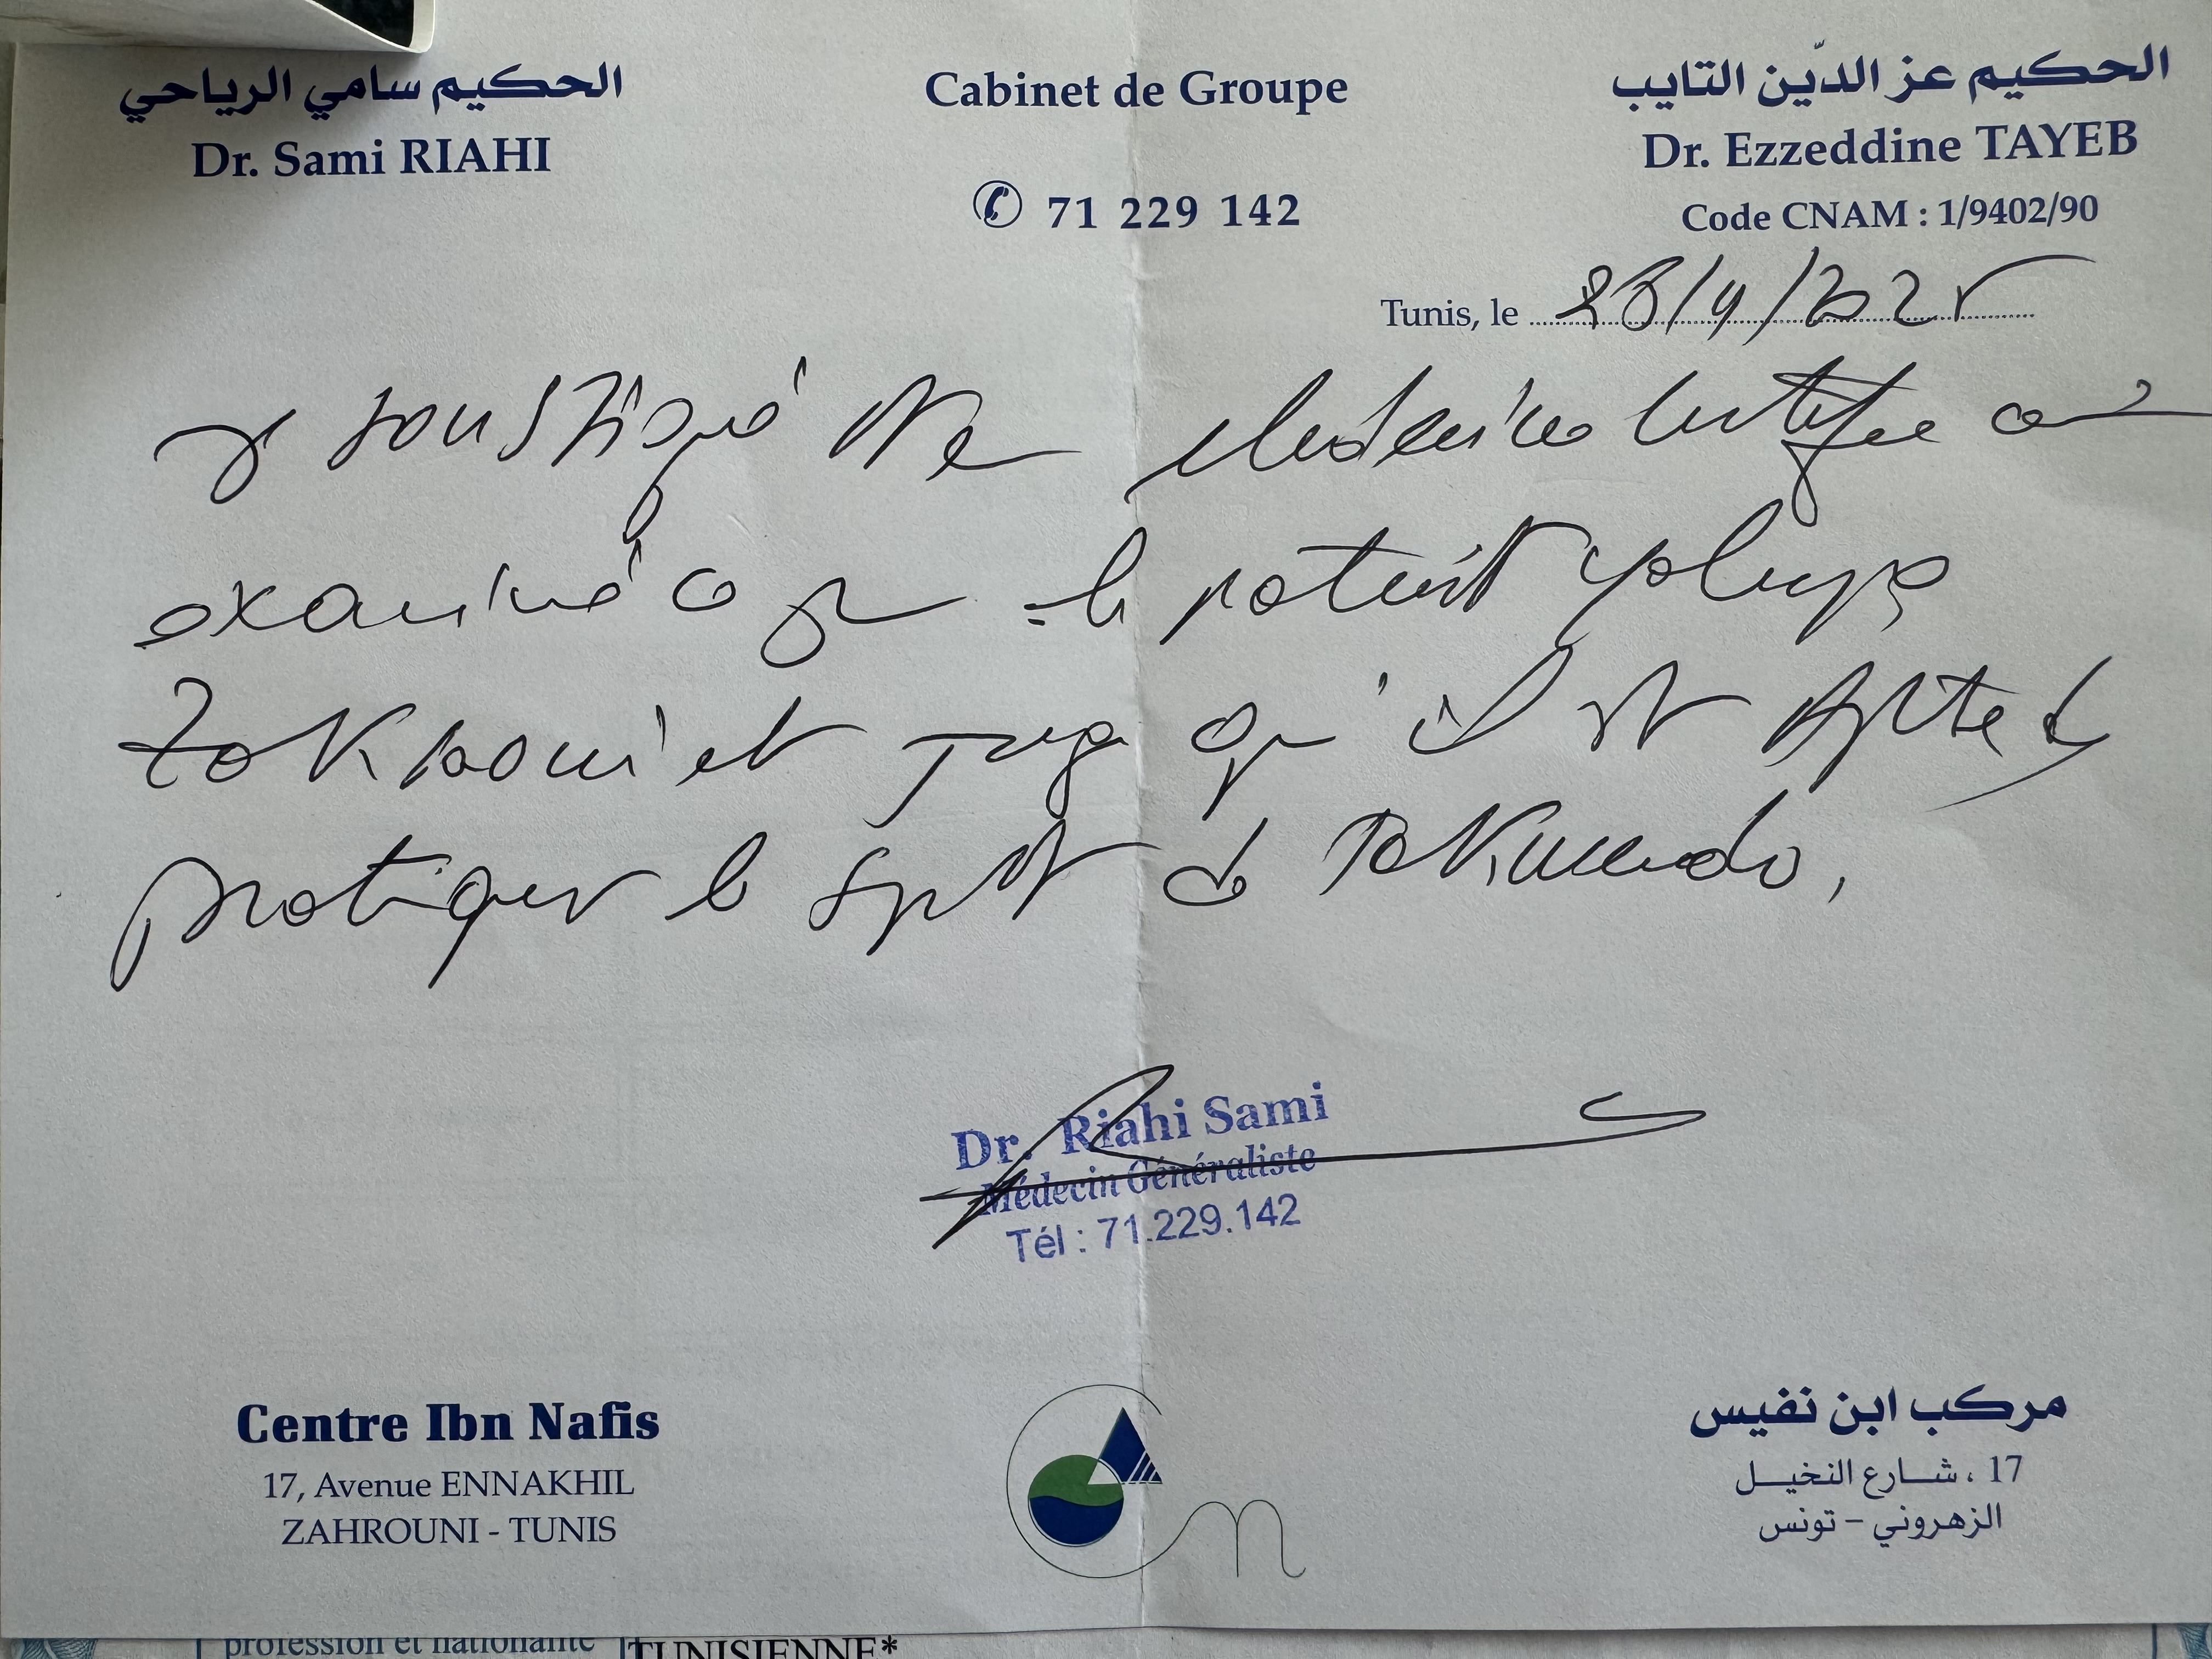 الحكيم سامي الرياحي
Dr. Sami RIAHI
Cabinet de Groupe
71 229 142
الحكيم عز الدّين التايب
Dr. Ezzeddine TAYEB
Code CNAM : 1/9402/90
Tunis, le 28/4/2025
Je soussigné Mr Médecin certifie avoir
examiné ce jour le patient
et juge qu'il est Apte à
pratiquer le sport de Taekwondo.
Dr. Riahi Sami
Médecin Généraliste
Tél : 71.229.142
Centre Ibn Nafis
17, Avenue ENNAKHIL
ZAHROUNI - TUNIS
مركب ابن نفيس
17 ، شارع النخيل
الزهروني – تونس
profession et nationalité
TUNISIENNE*